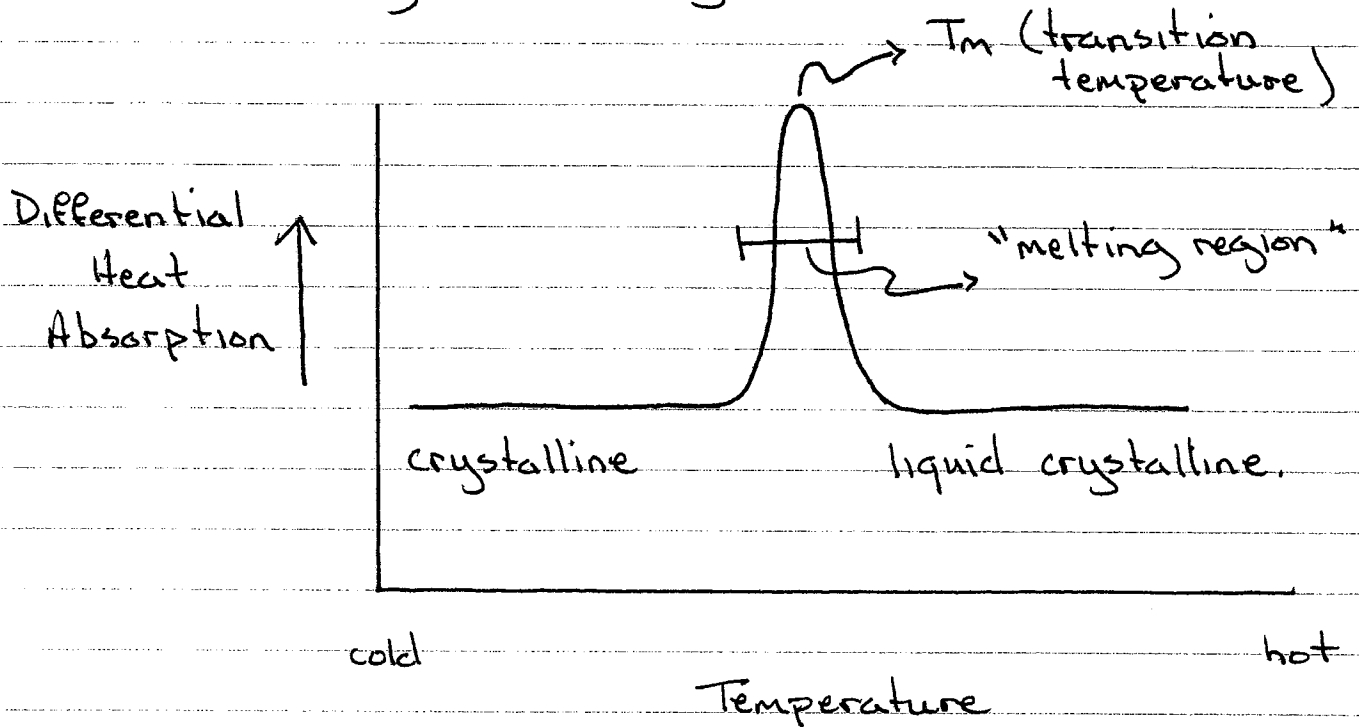 Tm (transition
temperature)
Differential
Heat
Absorption
"melting region"
crystalline
liquid crystalline.
cold
hot
Temperature